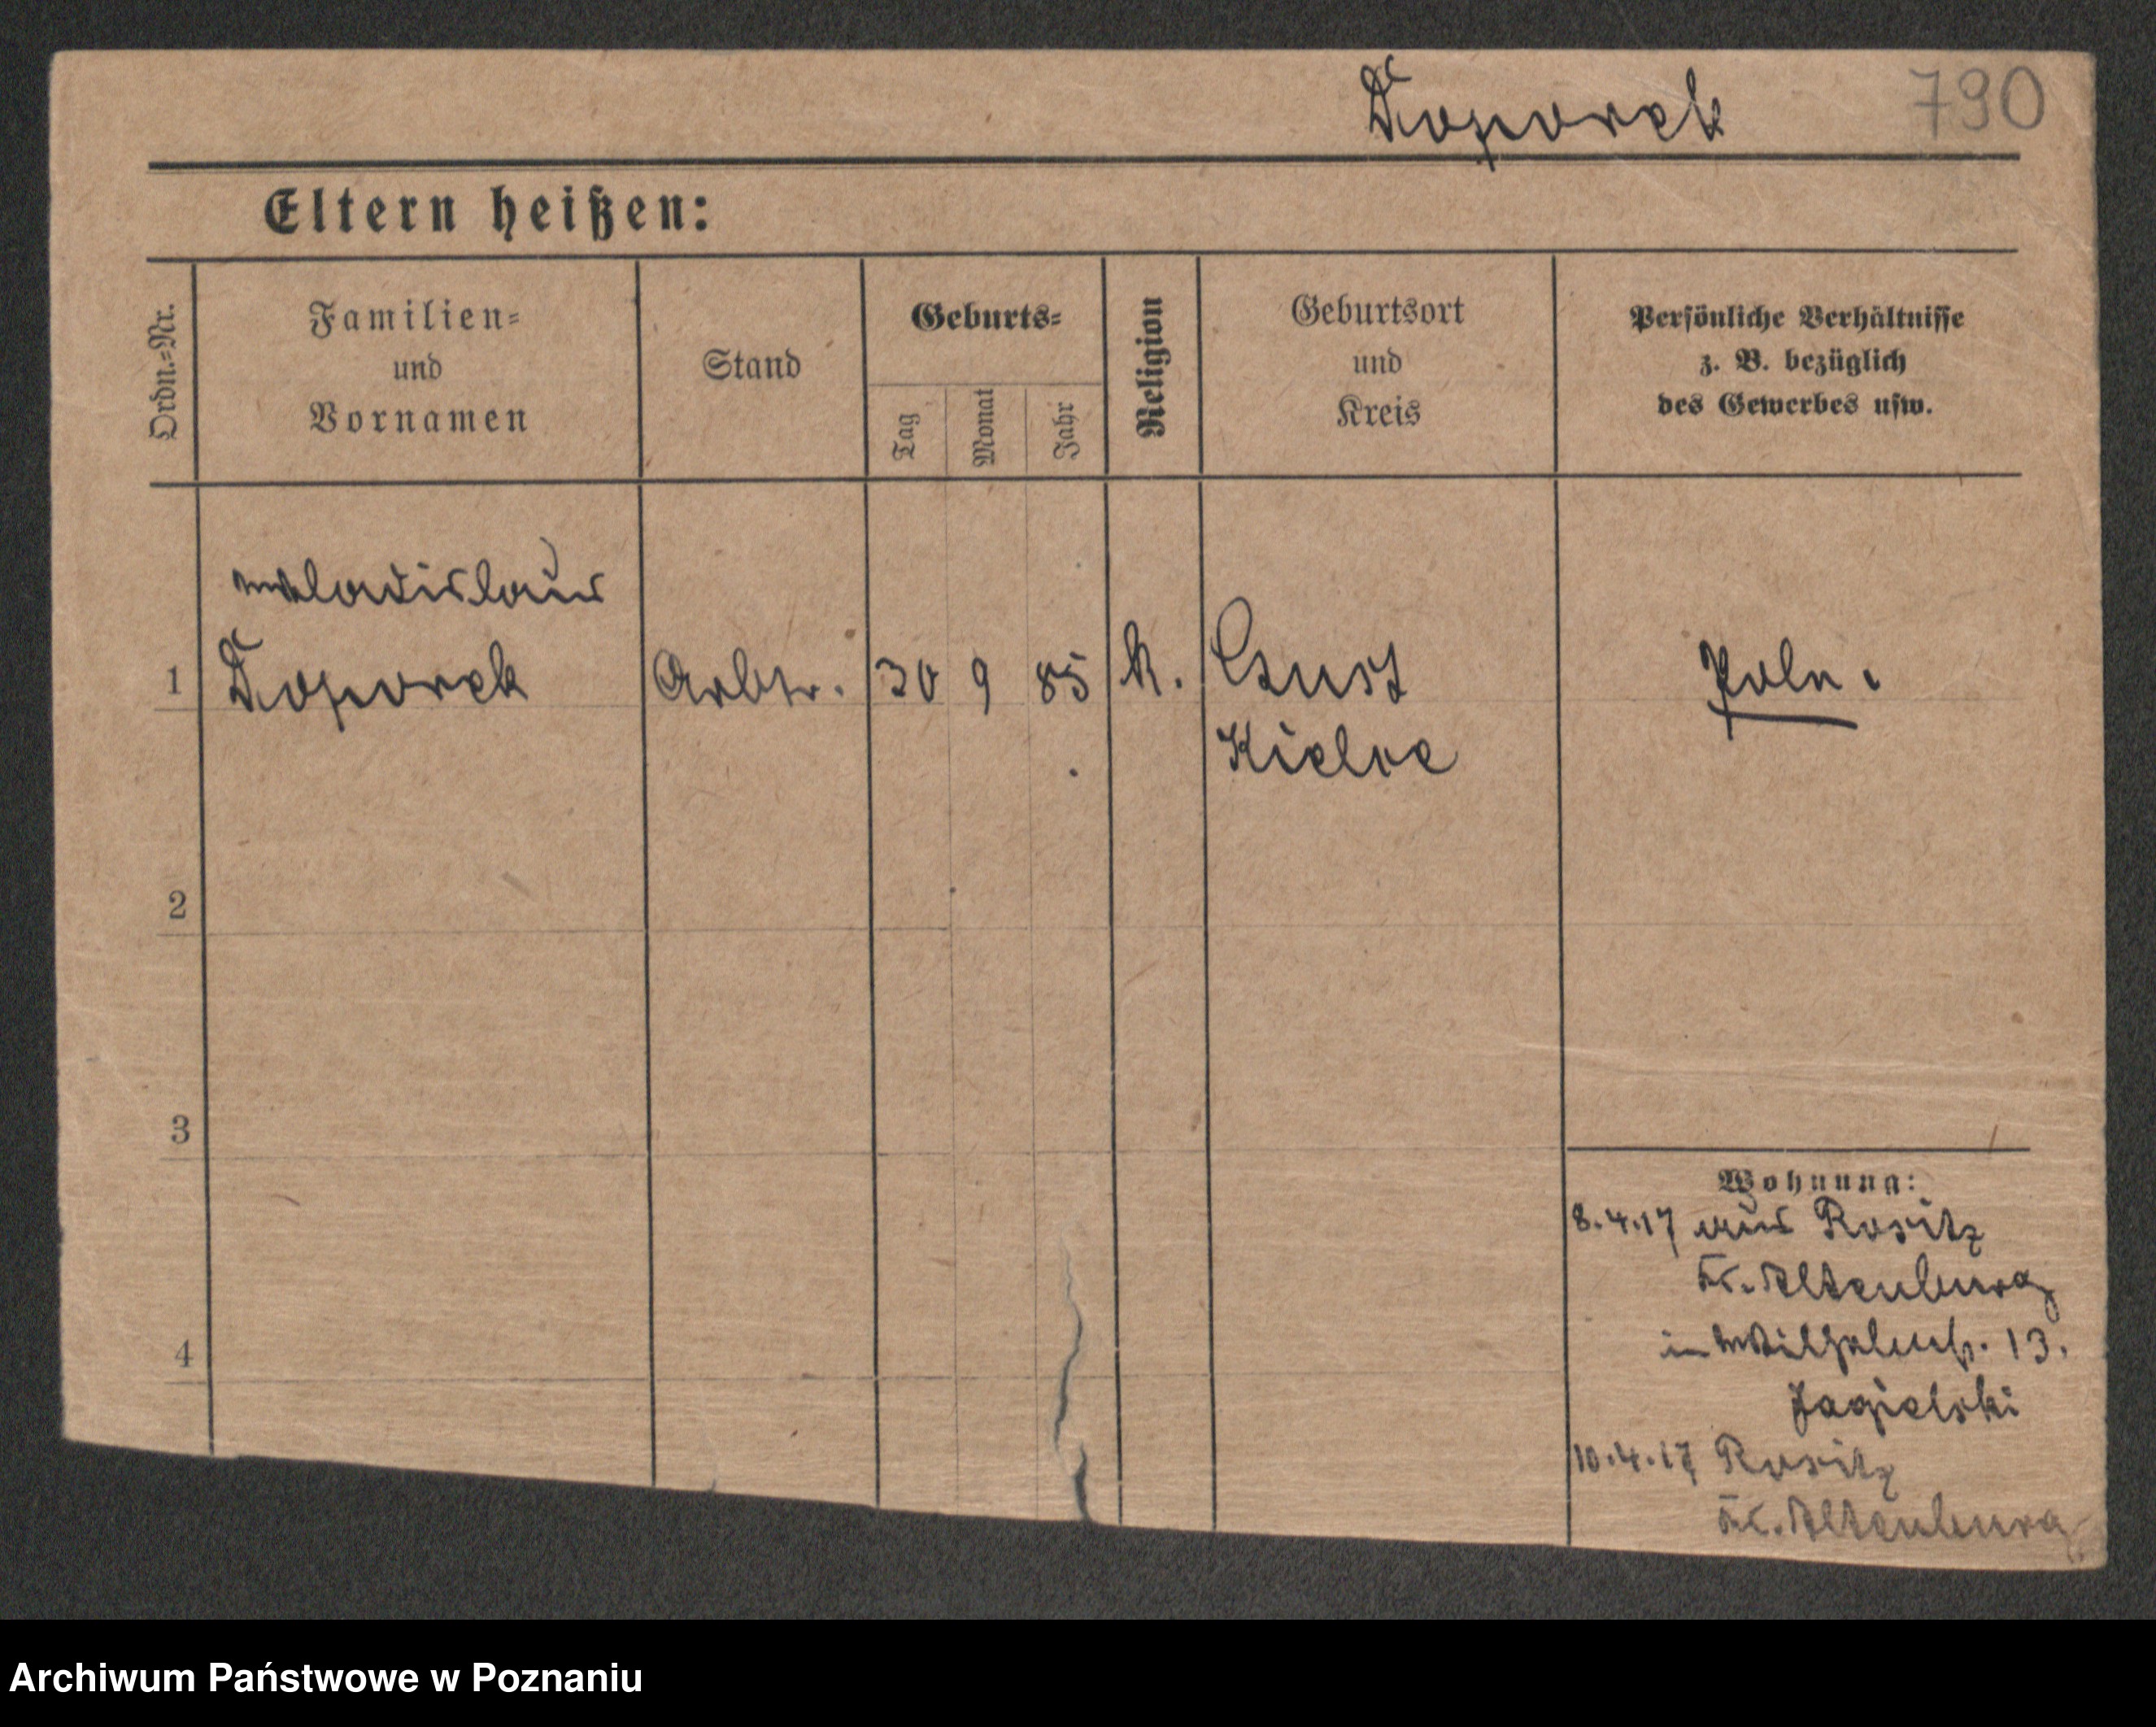 Toporek 790
Eltern heißen:
Ordn.=Nr.
Familien=
und
Vornamen
Stand
Geburts=
Tag
Monat
Jahr
Religion
Geburtsort
und
Kreis
Persönliche Verhältnisse
z. B. bezüglich
des Gewerbes usw.
Wladislaus
1 Toporek Arbtr. 30 9 85 k. Czust Poln.
Kielce
2
3
4
Wohnung:
8.4.17 aus Rositz
Kr. Altenburg
in Wilhelmstr. 13.
Jagielski
10.4.17 Rositz
Kr. Altenburg
Archiwum Państwowe w Poznaniu